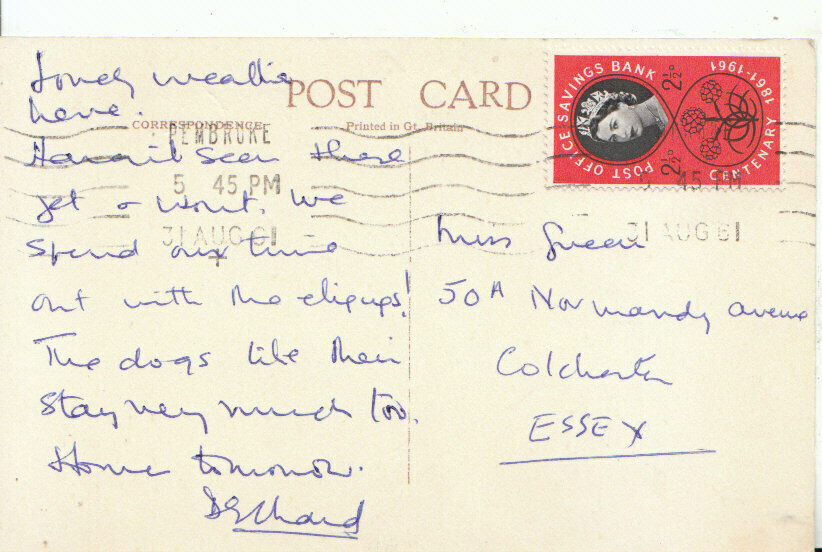 POST CARD
CORRESPONDENCE
Printed in Gt. Britain
Lovely weather
here.
Haven't seen these
yet & won't. We
spend our time
out with the
The dogs like their
stay very much too.
Home tomorrow.
PEMBROKE
5 45 PM
31 AUG 61
POST OFFICE SAVINGS BANK
2½D
2½D
1861·1961
CENTENARY
5 45 PM
31 AUG 61
Miss Green
50A Normandy avenue
Colchester
ESSEX